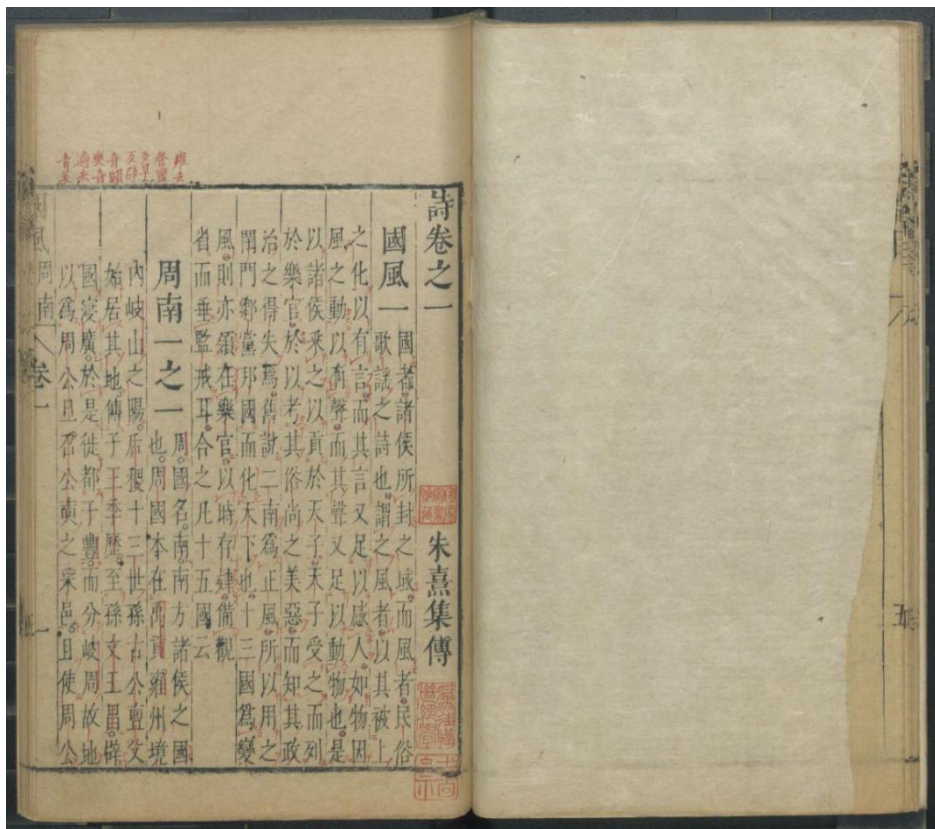 詩卷之一 朱熹集傳
國風一
國者諸侯所封之域而風者民俗
歌謠之詩也謂之風者以其被上
之化以有言而其言又足以感人如物因
風之動以有聲而其聲又足以動物也是
以諸侯采之以貢於天子天子受之而列
於樂官於以考其俗尚之美惡而知其政
治之得失焉舊說二南爲正風所以用之
閨門鄉黨邦國而化天下也十三國爲變
風則亦領在樂官以時存肄備觀
省而垂監戒耳合之凡十五國云
周南一之一
周國名南南方諸侯之國
也周國本在禹貢雍州境
內岐山之陽后稷十三世孫古公亶父
始居其地傳子王季歷至孫文王昌辟
國寖廣於是徙都于豐而分岐周故地
以爲周公旦召公奭之采邑且使周公
國風 周南 卷一
一